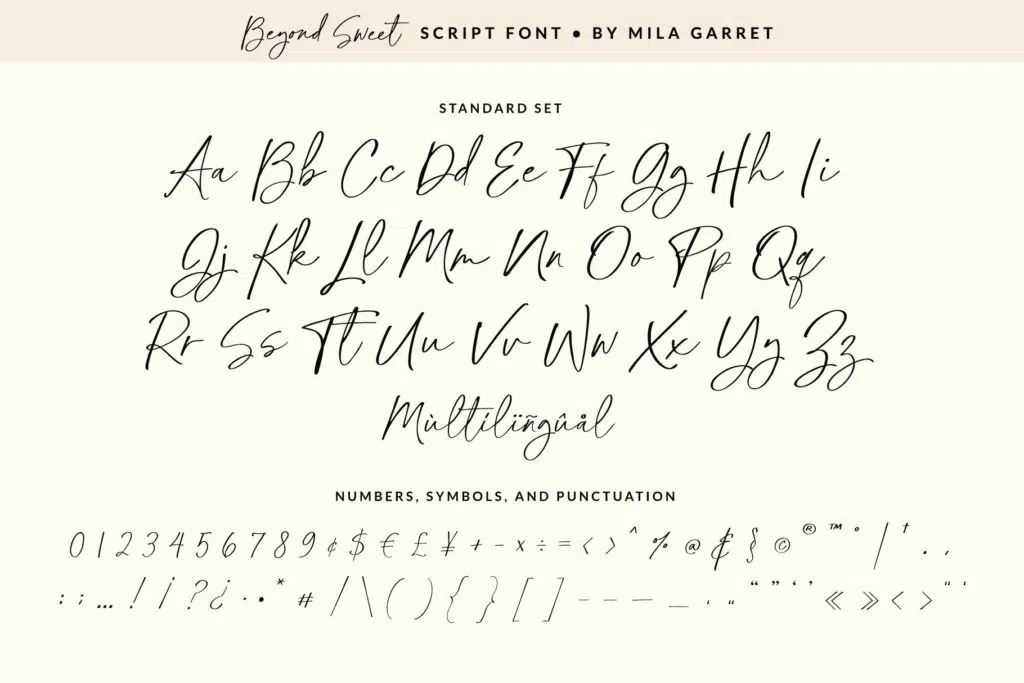 Beyond Sweet SCRIPT FONT • BY MILA GARRET
STANDARD SET
Aa Bb Cc Dd Ee Ff Gg Hh Ii
Jj Kk Ll Mm Nn Oo Pp Qq
Rr Ss Tt Uu Vv Ww Xx Yy Zz
Mùltílïñgûål
NUMBERS, SYMBOLS, AND PUNCTUATION
0 1 2 3 4 5 6 7 8 9 ¢ $ € £ ¥ + - × ÷ = < > ^ % @ ₵ § © ® ™ ° | † . ,
: ; … ! ¡ ? ¿ · • * # / \ ( ) { } [ ] - – — _ ' " “ ” ‘ ’ « » ‹ › " '